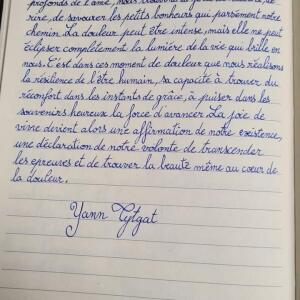 profonds de l'âme, nous
rire, de savourer les petits bonheurs qui parsèment notre
chemin. La douleur peut être intense, mais elle ne peut
éclipser complètement la lumière de la vie qui brille en
nous. C'est dans ces moment de douleur que nous réalisons
la résilience de l'être humain, sa capacité à trouver du
réconfort dans les instants de grâce, à puiser dans les
souvenirs heureux la force d'avancer. La joie de
vivre devient alors une affirmation de notre existence,
une déclaration de notre volonté de transcender
les épreuves et de trouver la beauté même au cœur de
la douleur.
Yann Tytgat